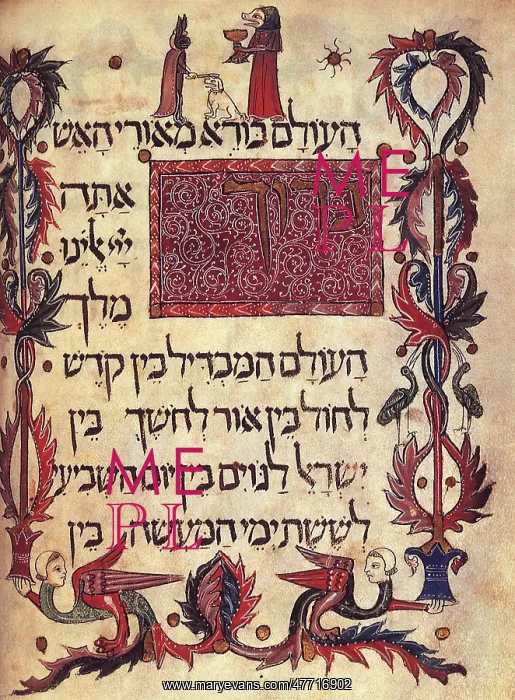 העולם בורא מאורי האש
ברוך
אתה
יי אלינו
מלך
העולם המבדיל בין קדש
לחול בין אור לחשך בין
ישראל לגוים בין יום השביעי
לששת ימי המעשה בין
ME
PL
ME
PL
www.maryevans.com/47716902